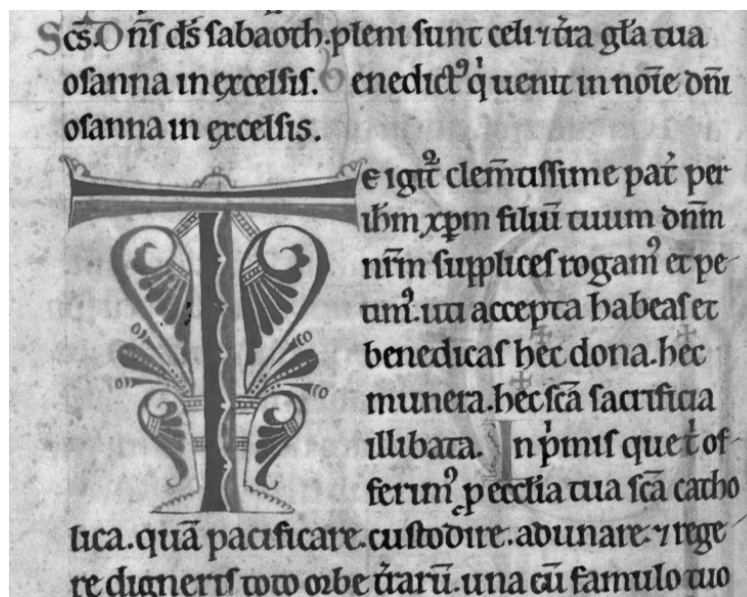 Scs. Dn̄s ds̄ sabaoth. pleni sunt celi ⁊ t̄ra gl̄a tua
osanna in excelsis. Benedict᷒ q̇ uenit in noīe dn̄i
osanna in excelsis.
Te igit᷑ clem̄tissime pat̄ per
ih̄m xp̄m filiū tuum dn̄m
nr̄m supplices rogam᷒ et pe-
tim᷒. uti accepta habeas et
benedicas hec dona. hec
munera. hec sc̄a sacrificia
illibata. In ṗmis que ṫ of-
ferim᷒ p eccl̄ia tua sc̄a catho
lica. quā pacificare. custodire. adunare. ⁊ rege-
re digneris toto orbe t̄rarū. una cū famulo tuo